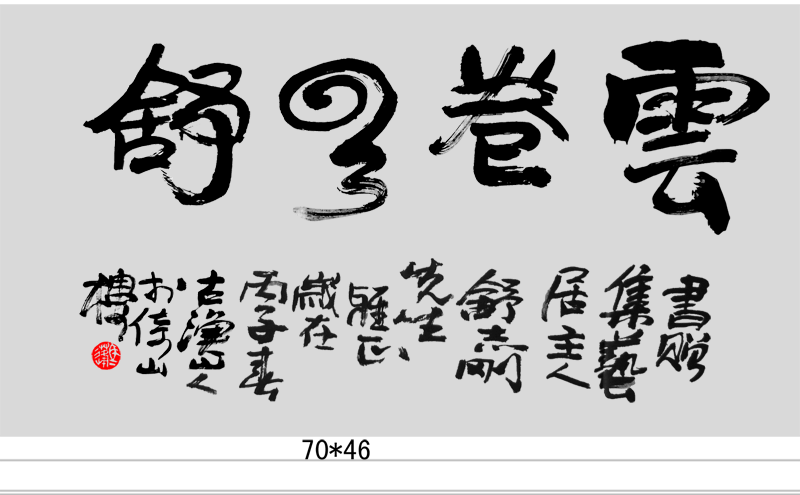 雲卷雲舒
書贈
集藝
居主人
舒志刚
先生
雅正
歲在
丙子春
古漁山人
於倚山
樓
70*46